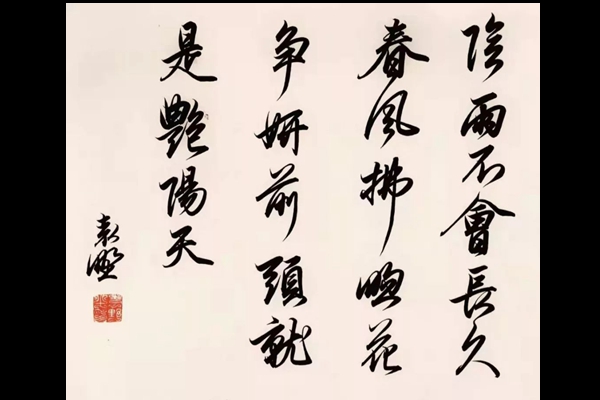 陰雨不會長久
春風拂花
争妍前頭就
是艷陽天
袁